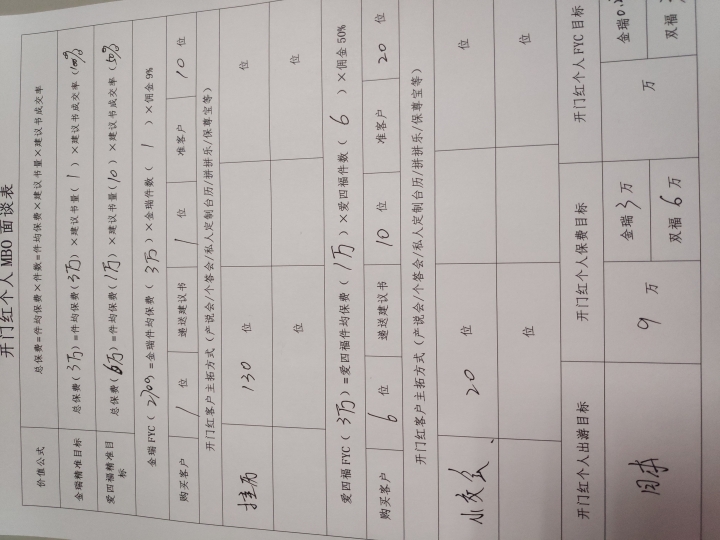 开门红个人 MBO 面谈表
价值公式 总保费=件均保费×件数=件均保费×建议书量×建议书成交率
金瑞精准目标 总保费(3万)=件均保费(3万)×建议书量(1)×建议书成交率(100%
爱四福精准目标 总保费(6万)=件均保费(1万)×建议书量(10)×建议书成交率(
金瑞 FYC(2700=金瑞件均保费(3万)×金瑞件数(1)×佣金 9%
购买客户 1 位 递送建议书 1 位 准客户 10 位
开门红客户主拓方式(产说会/个答会/私人定制台历/拼拼乐/保尊宝等)
挂历 130 位 位
位 位
爱四福 FYC(3万)=爱四福件均保费(1万)×爱四福件数(6)×佣金 50%
购买客户 6 位 递送建议书 10 位 准客户 20 位
开门红客户主拓方式(产说会/个答会/私人定制台历/拼拼乐/保尊宝等)
小交会、 20 位 位
位 位
开门红个人出游目标 开门红个人保费目标 开门红个人 FYC 目标
日本 9 万 金瑞 3 万 万 金瑞
双福 6 万 双福